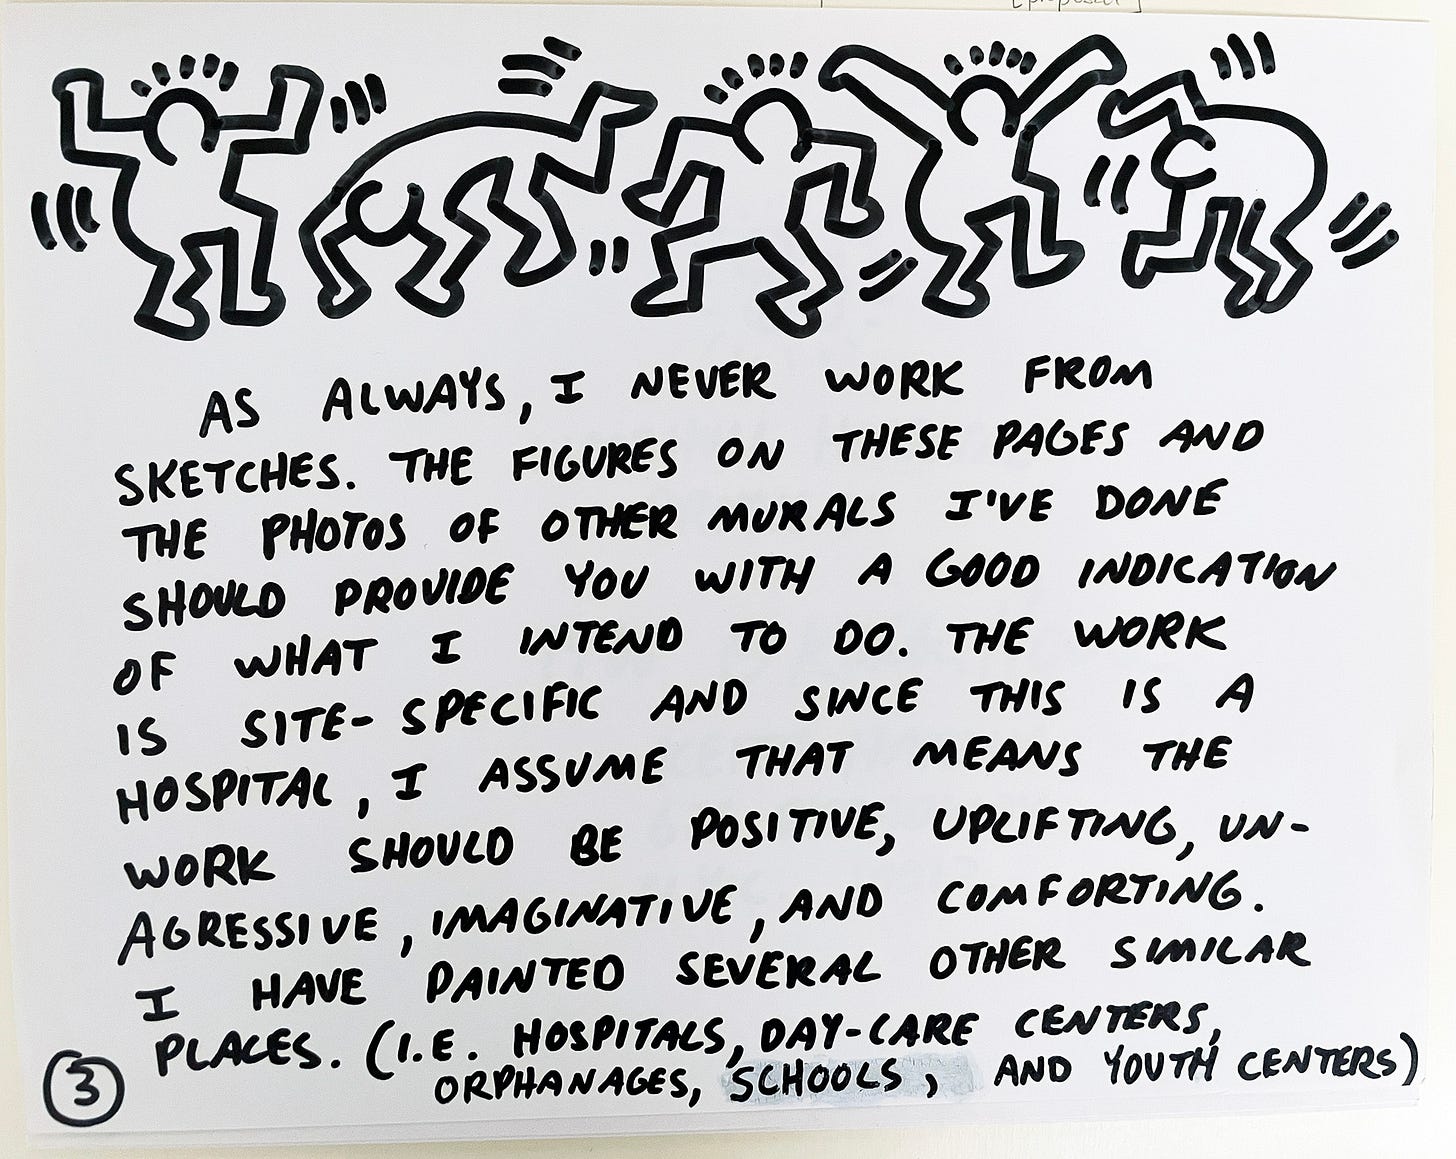 [proposal]
AS ALWAYS, I NEVER WORK FROM
SKETCHES. THE FIGURES ON THESE PAGES AND
THE PHOTOS OF OTHER MURALS I'VE DONE
SHOULD PROVIDE YOU WITH A GOOD INDICATION
OF WHAT I INTEND TO DO. THE WORK
IS SITE-SPECIFIC AND SINCE THIS IS A
HOSPITAL, I ASSUME THAT MEANS THE
WORK SHOULD BE POSITIVE, UPLIFTING, UN-
AGRESSIVE, IMAGINATIVE, AND COMFORTING.
I HAVE PAINTED SEVERAL OTHER SIMILAR
PLACES. (I.E. HOSPITALS, DAY-CARE CENTERS,
ORPHANAGES, SCHOOLS, AND YOUTH CENTERS)
3